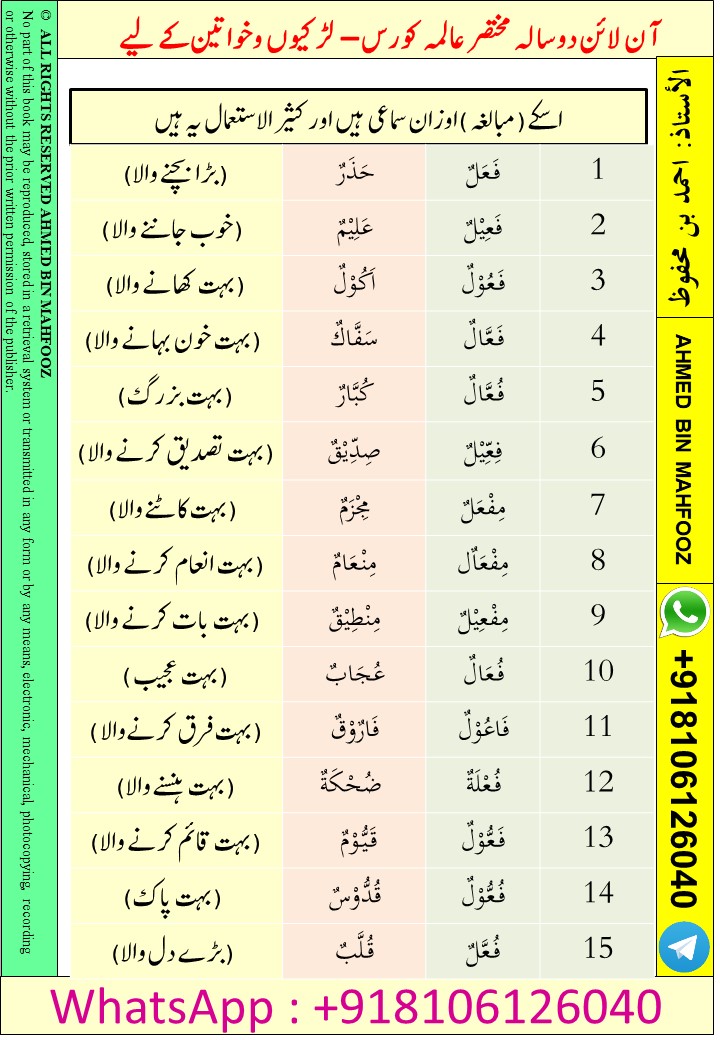 آن لائن دو سالہ مختصر عالمہ کورس – لڑکیوں و خواتین کے لیے
اسکے (مبالغہ) اوزان سماعی ہیں اور کثیر الاستعمال یہ ہیں
1 فَعَلٌ حَذَرٌ (بڑا بچنے والا)
2 فَعِيْلٌ عَلِيْمٌ (خوب جاننے والا)
3 فَعُوْلٌ اَكُوْلٌ (بہت کھانے والا)
4 فَعَّالٌ سَفَّاكٌ (بہت خون بہانے والا)
5 فُعَّالٌ كُبَّارٌ (بہت بزرگ)
6 فِعِّيْلٌ صِدِّيْقٌ (بہت تصدیق کرنے والا)
7 مِفْعَلٌ مِجْزَمٌ (بہت کاٹنے والا)
8 مِفْعَاٌل مِنْعَامٌ (بہت انعام کرنے والا)
9 مِفْعِيْلٌ مِنْطِيْقٌ (بہت بات کرنے والا)
10 فُعَالٌ عُجَابٌ (بہت عجیب)
11 فَاعُوْلٌ فَارُوْقٌ (بہت فرق کرنے والا)
12 فُعْلَةٌ ضُحْكَةٌ (بہت ہنسنے والا)
13 فَعُّوْلٌ قَيُّوْمٌ (بہت قائم کرنے والا)
14 فُعُّوْلٌ قُدُّوْسٌ (بہت پاک)
15 فُعَّلٌ قُلَّبٌ (بڑے دل والا)
الأستاذ: احمد بن محفوظ
AHMED BIN MAHFOOZ
+918106126040
© ALL RIGHTS RESERVED AHMED BIN MAHFOOZ
No part of this book may be reproduced, stored in a retrieval system or transmitted in any form or by any means, electronic, mechanical, photocopying, recording
or otherwise without the prior written permission of the publisher.
WhatsApp : +918106126040